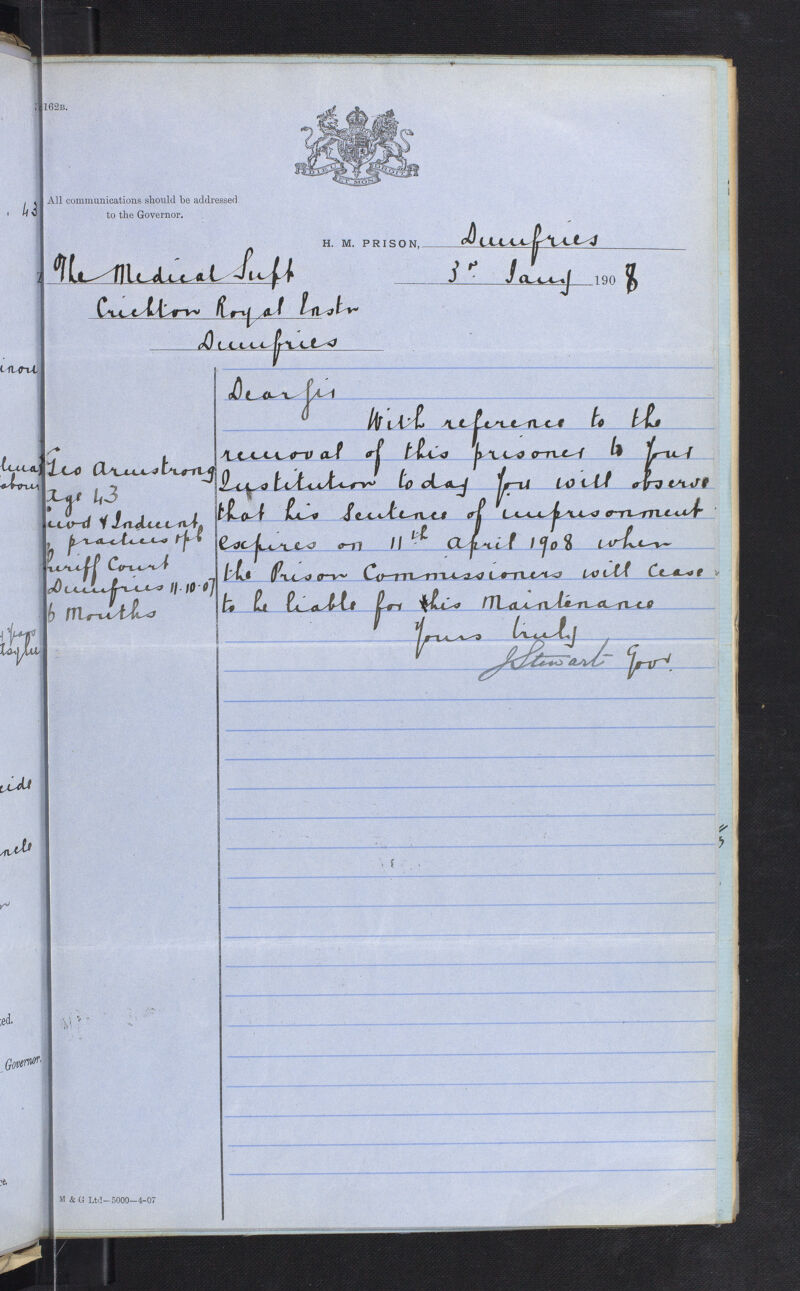 162B.
DIEU ET MON DROIT
All communications should be addressed
to the Governor.
H. M. PRISON, Dumfries
3rd Jany 1908
The Medical Supt
Crichton Royal Instn
Dumfries
Dear Sir
With reference to the
removal of this prisoner to your
Institution today you will observe
that his Sentence of imprisonment
expires on 11th April 1908 when
the Prison Commissioners will cease
to be liable for this Maintenance
Yours truly
J Stewart Govr.
Geo Armstrong
Age 43
Lewd & Indecent
practices
Sheriff Court
Dumfries 11.10.07
6 Months
M & G Ltd—5000—4-07
43
Governor.